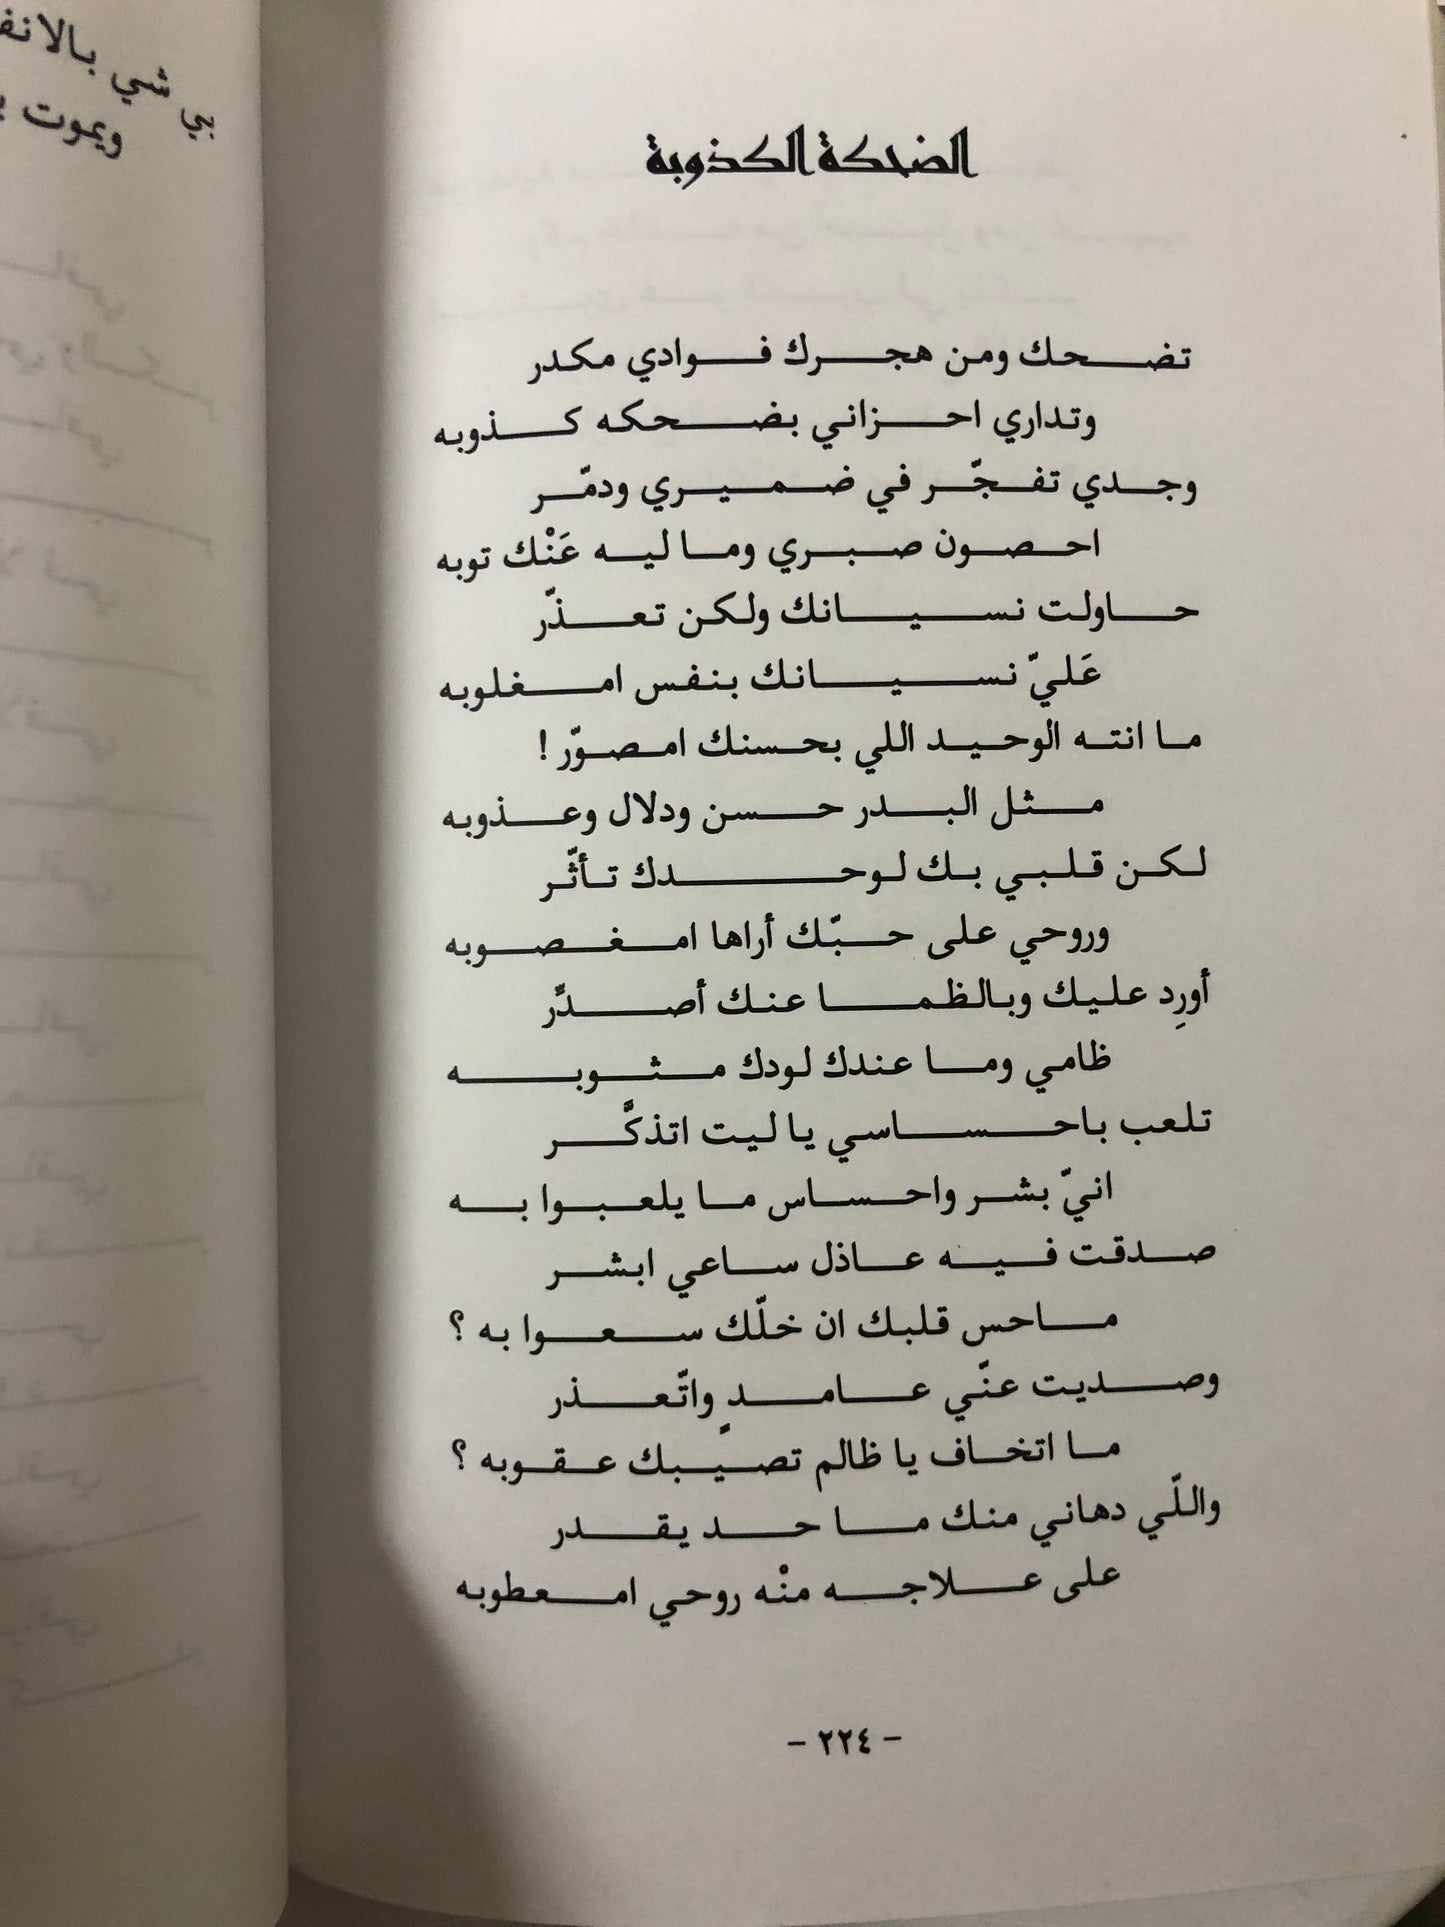 بي شي بالانف
ويموت
الضحكة الكذوبة
تضحك ومن هجرك فوادي مكدر
وتداري احزاني بضحكه كذوبه
وجدي تفجّر في ضميري ودمّر
احصون صبري وما ليه عَنْك توبه
حاولت نسيانك ولكن تعذّر
عَليّ نسيانك بنفس امغلوبه
ما انته الوحيد اللي بحسنك امصوّر !
مثل البدر حسن ودلال وعذوبه
لكن قلبي بك لوحدك تأثّر
وروحي على حبّك أراها امغصوبه
أورِد عليك وبالظما عنك أصدَّر
ظامي وما عندك لودك مثوبه
تلعب باحساسي يا ليت اتذكَّر
انيّ بشر واحساس ما يلعبوا به
صدقت فيه عاذل ساعي ابشر
ماحس قلبك ان خلّك سعوا به ؟
وصديت عنّي عامدٍ واتّعذر
ما اتخاف يا ظالم تصيبك عقوبه ؟
واللّي دهاني منك ما حد يقدر
على علاجه منْه روحي امعطوبه
- ٢٢٤ -